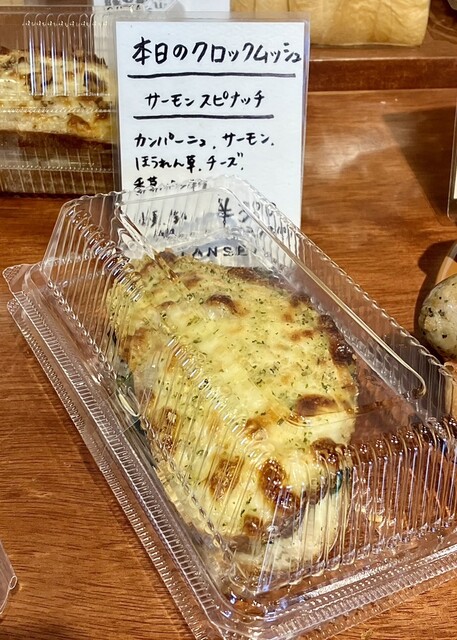 本日のクロックムッシュ
サーモンスピナッチ
カンパーニュ、サーモン、
ほうれん草、チーズ、
香草
¥